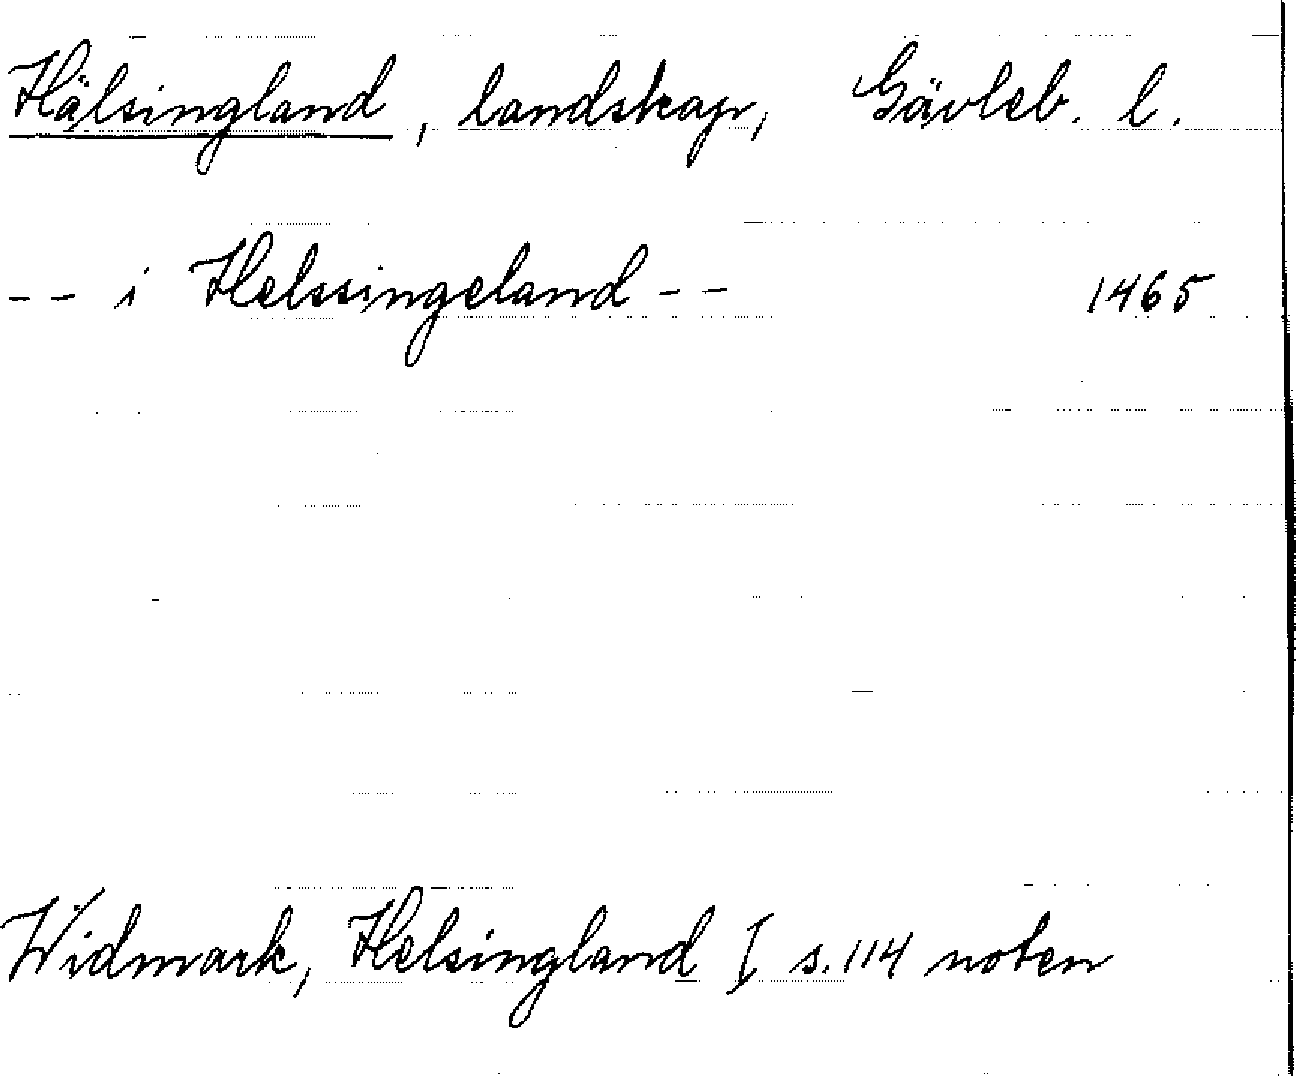 Hälsingland, landskap, Gävleb. l.
-- i Helssingeland -- 1465
Widmark, Helsingland I s. 114 noten